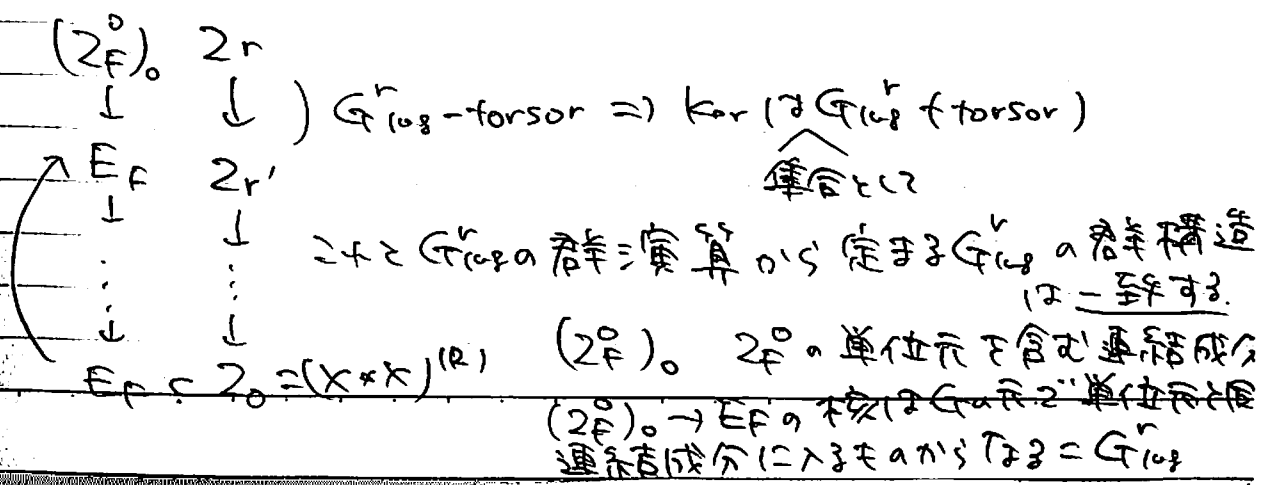 (Z_F^0)_0 Z_r
↓ ↓ ) G_log^r-torsor ⇒ ker は G_log^r の torsor )
E_F Z_r' 集合として
↓ ↓ これと G_log^r の群演算から定まる G_log^r の群構造
は一致する.
↓ ↓ (Z_F^0)_0 Z_F^0 の単位元を含む連結成分
E_F ⊂ Z_0 = (X*X)^(R)
(Z_F^0)_0 → E_F の核は G の元で単位元と同
連結成分に入るものからなる = G_log^r